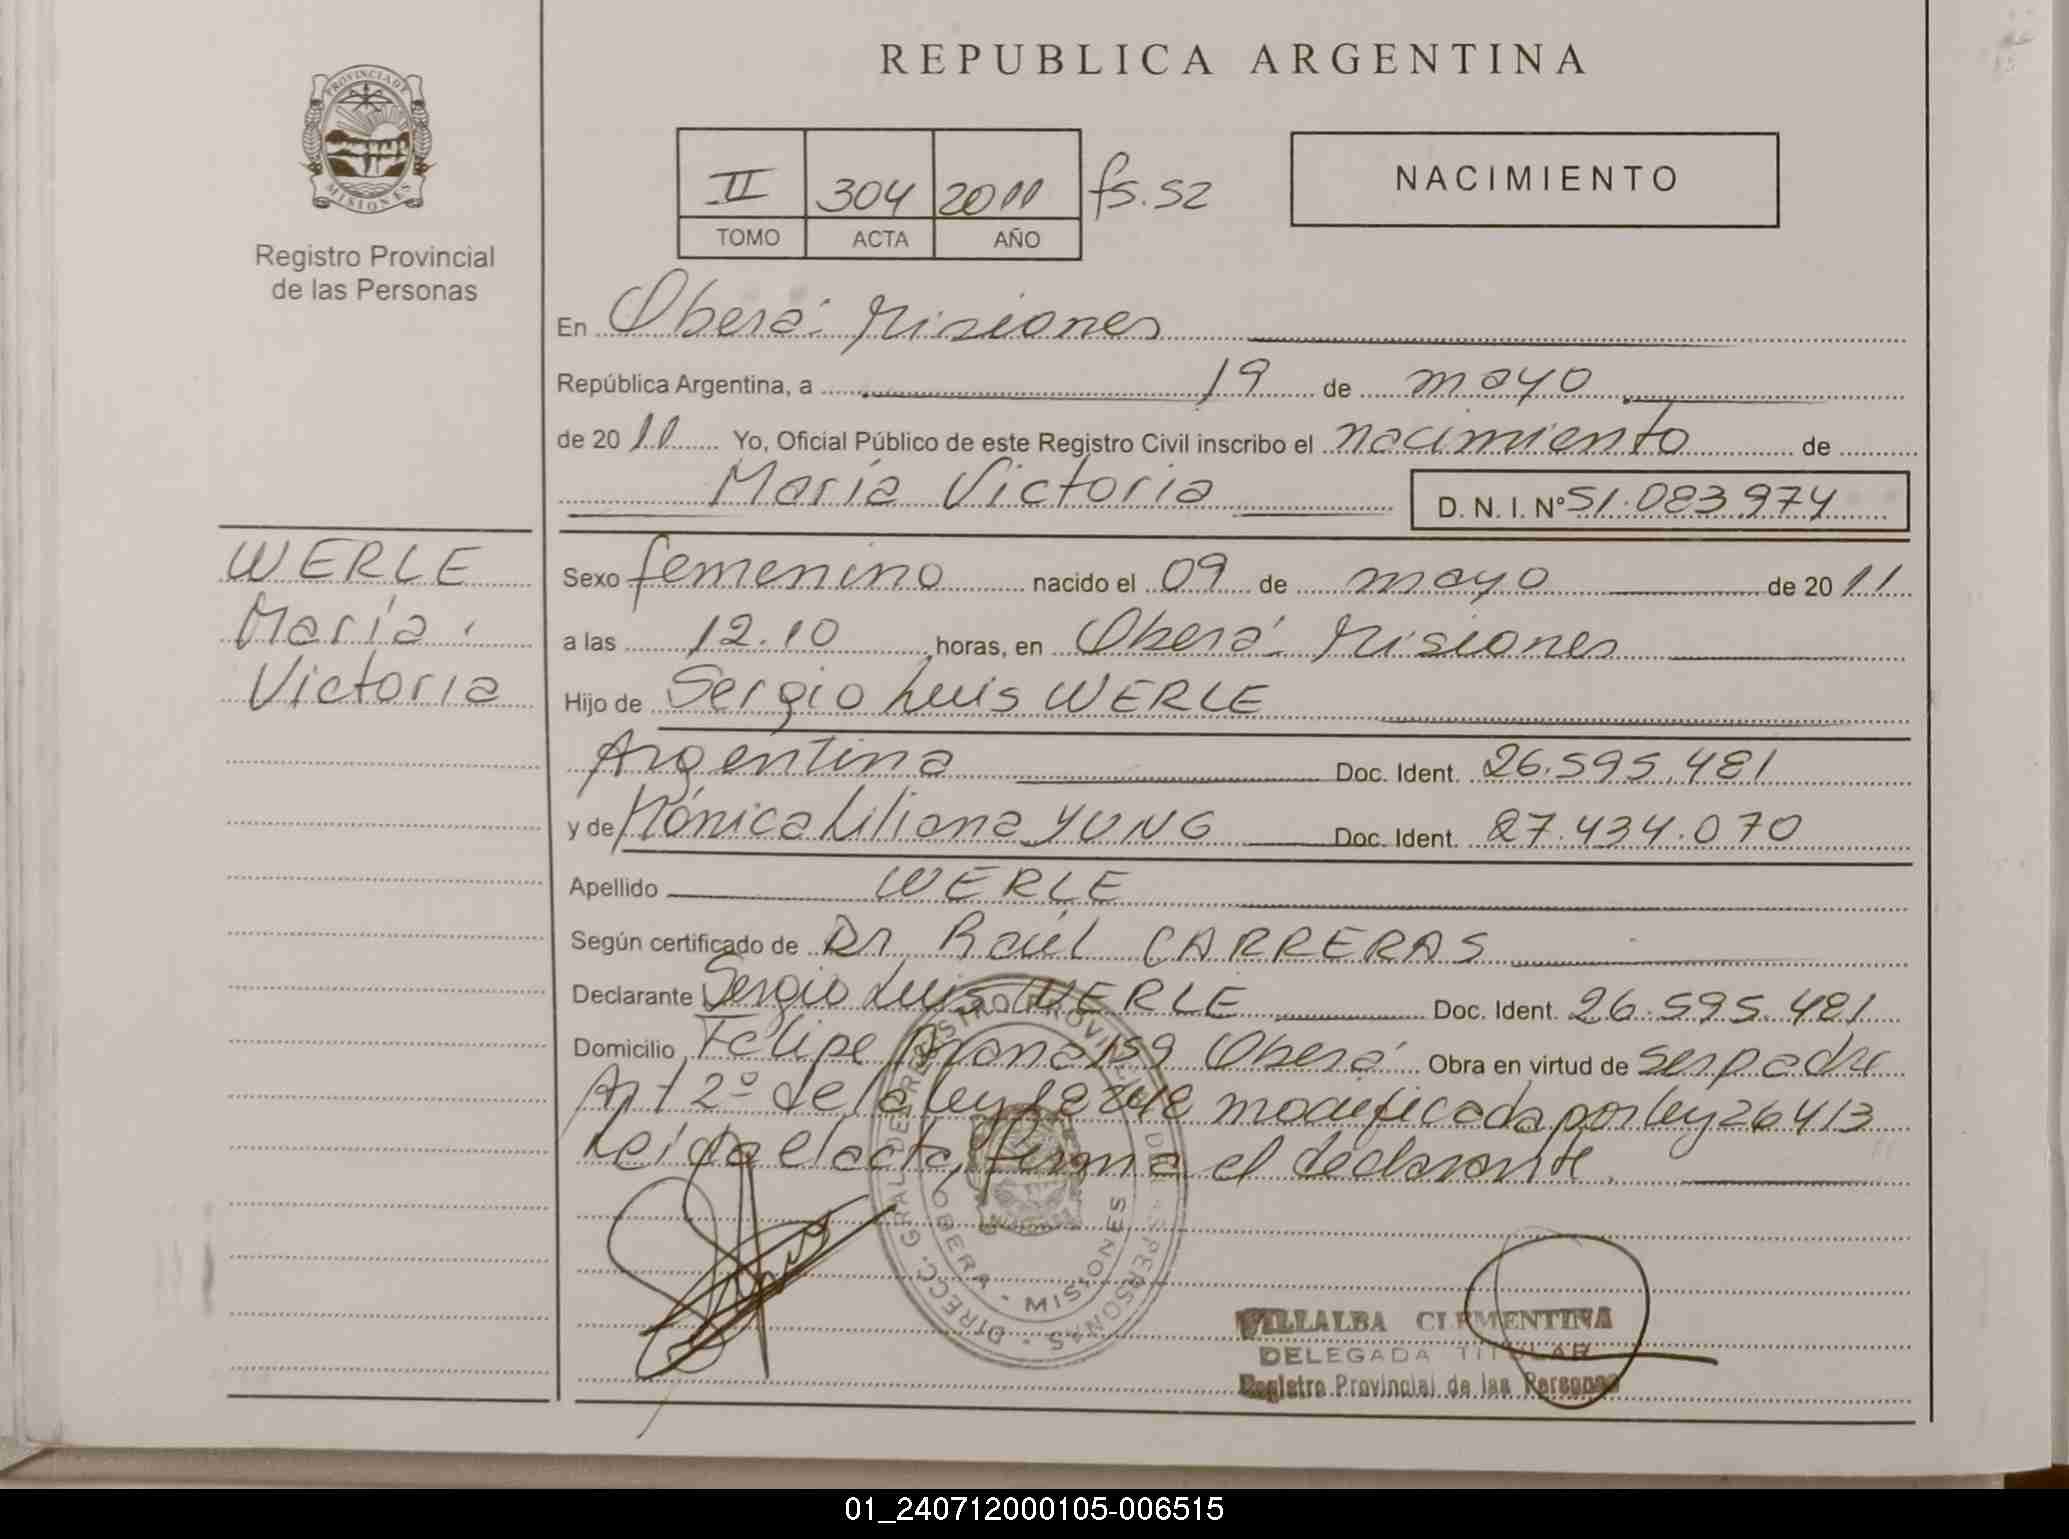 REPUBLICA ARGENTINA
PROVINCIA DE MISIONES
Registro Provincial
de las Personas
II 304 2011 fs. 52
TOMO ACTA AÑO
NACIMIENTO
En Oberá Misiones
República Argentina, a 19 de mayo
de 2011 Yo, Oficial Público de este Registro Civil inscribo el nacimiento de
María Victoria D. N. I. Nº 51.083.974
WERLE
María
Victoria
Sexo femenino nacido el 09 de mayo de 2011
a las 12.10 horas, en Oberá Misiones
Hijo de Sergio Luis WERLE
Argentina Doc. Ident. 26.595.481
y de Mónica Liliana YUNG Doc. Ident. 27.434.070
Apellido WERLE
Según certificado de Dr. Raúl CARRERAS
Declarante Sergio Luis WERLE Doc. Ident. 26.595.481
Domicilio Felipe 159 Oberá Obra en virtud de ser padre
Art 2º de la ley 18248 modificada por ley 26413
Leída el acta, firma el declarante.
DIRECC. GRAL DE REGISTRO PROVINCIAL DE LAS PERSONAS
OBERA - MISIONES
VILLALBA CLEMENTINA
DELEGADA TITULAR
Registro Provincial de las Personas
01_240712000105-006515